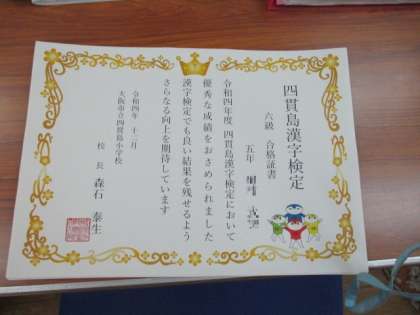 四貫島漢字検定
六級　合格証書
五年
令和四年度　四貫島漢字検定において
優秀な成績をおさめられました
漢字検定でも良い結果を残せるよう
さらなる向上を期待しています
令和四年　十二月
大阪市立四貫島小学校
校長　森石　泰生